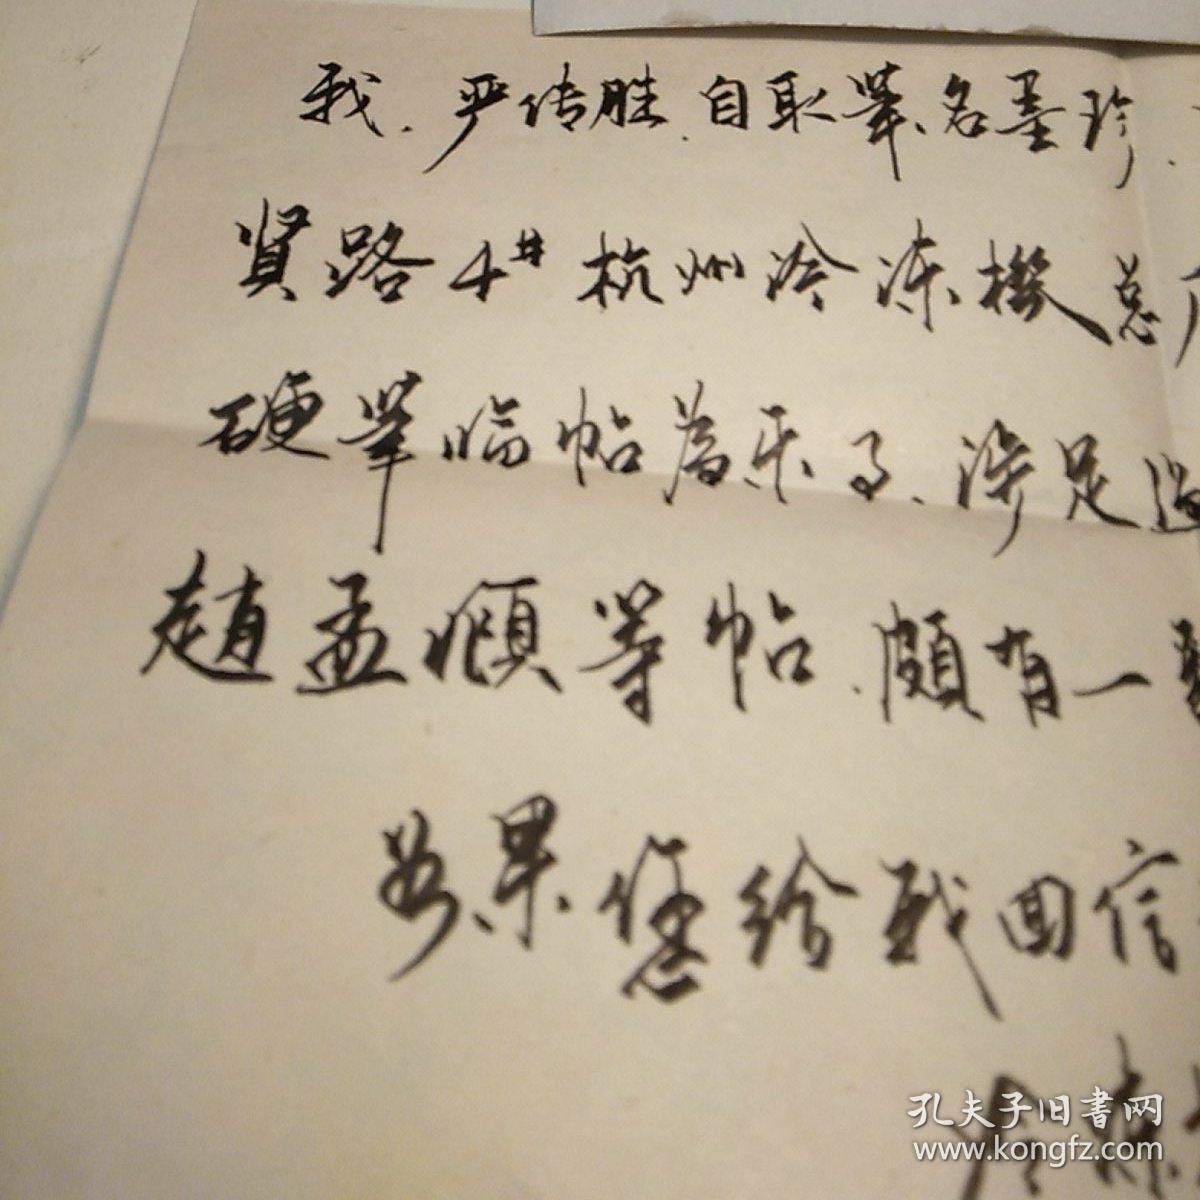 我、严传胜、自取筆名墨珍、
贤路4#杭州冷冻機总厂
硬筆临帖为乐了、涉足
趙孟頫等帖、颇有一
如果您给我回信
冷冻
孔夫子旧書网
www.kongfz.com